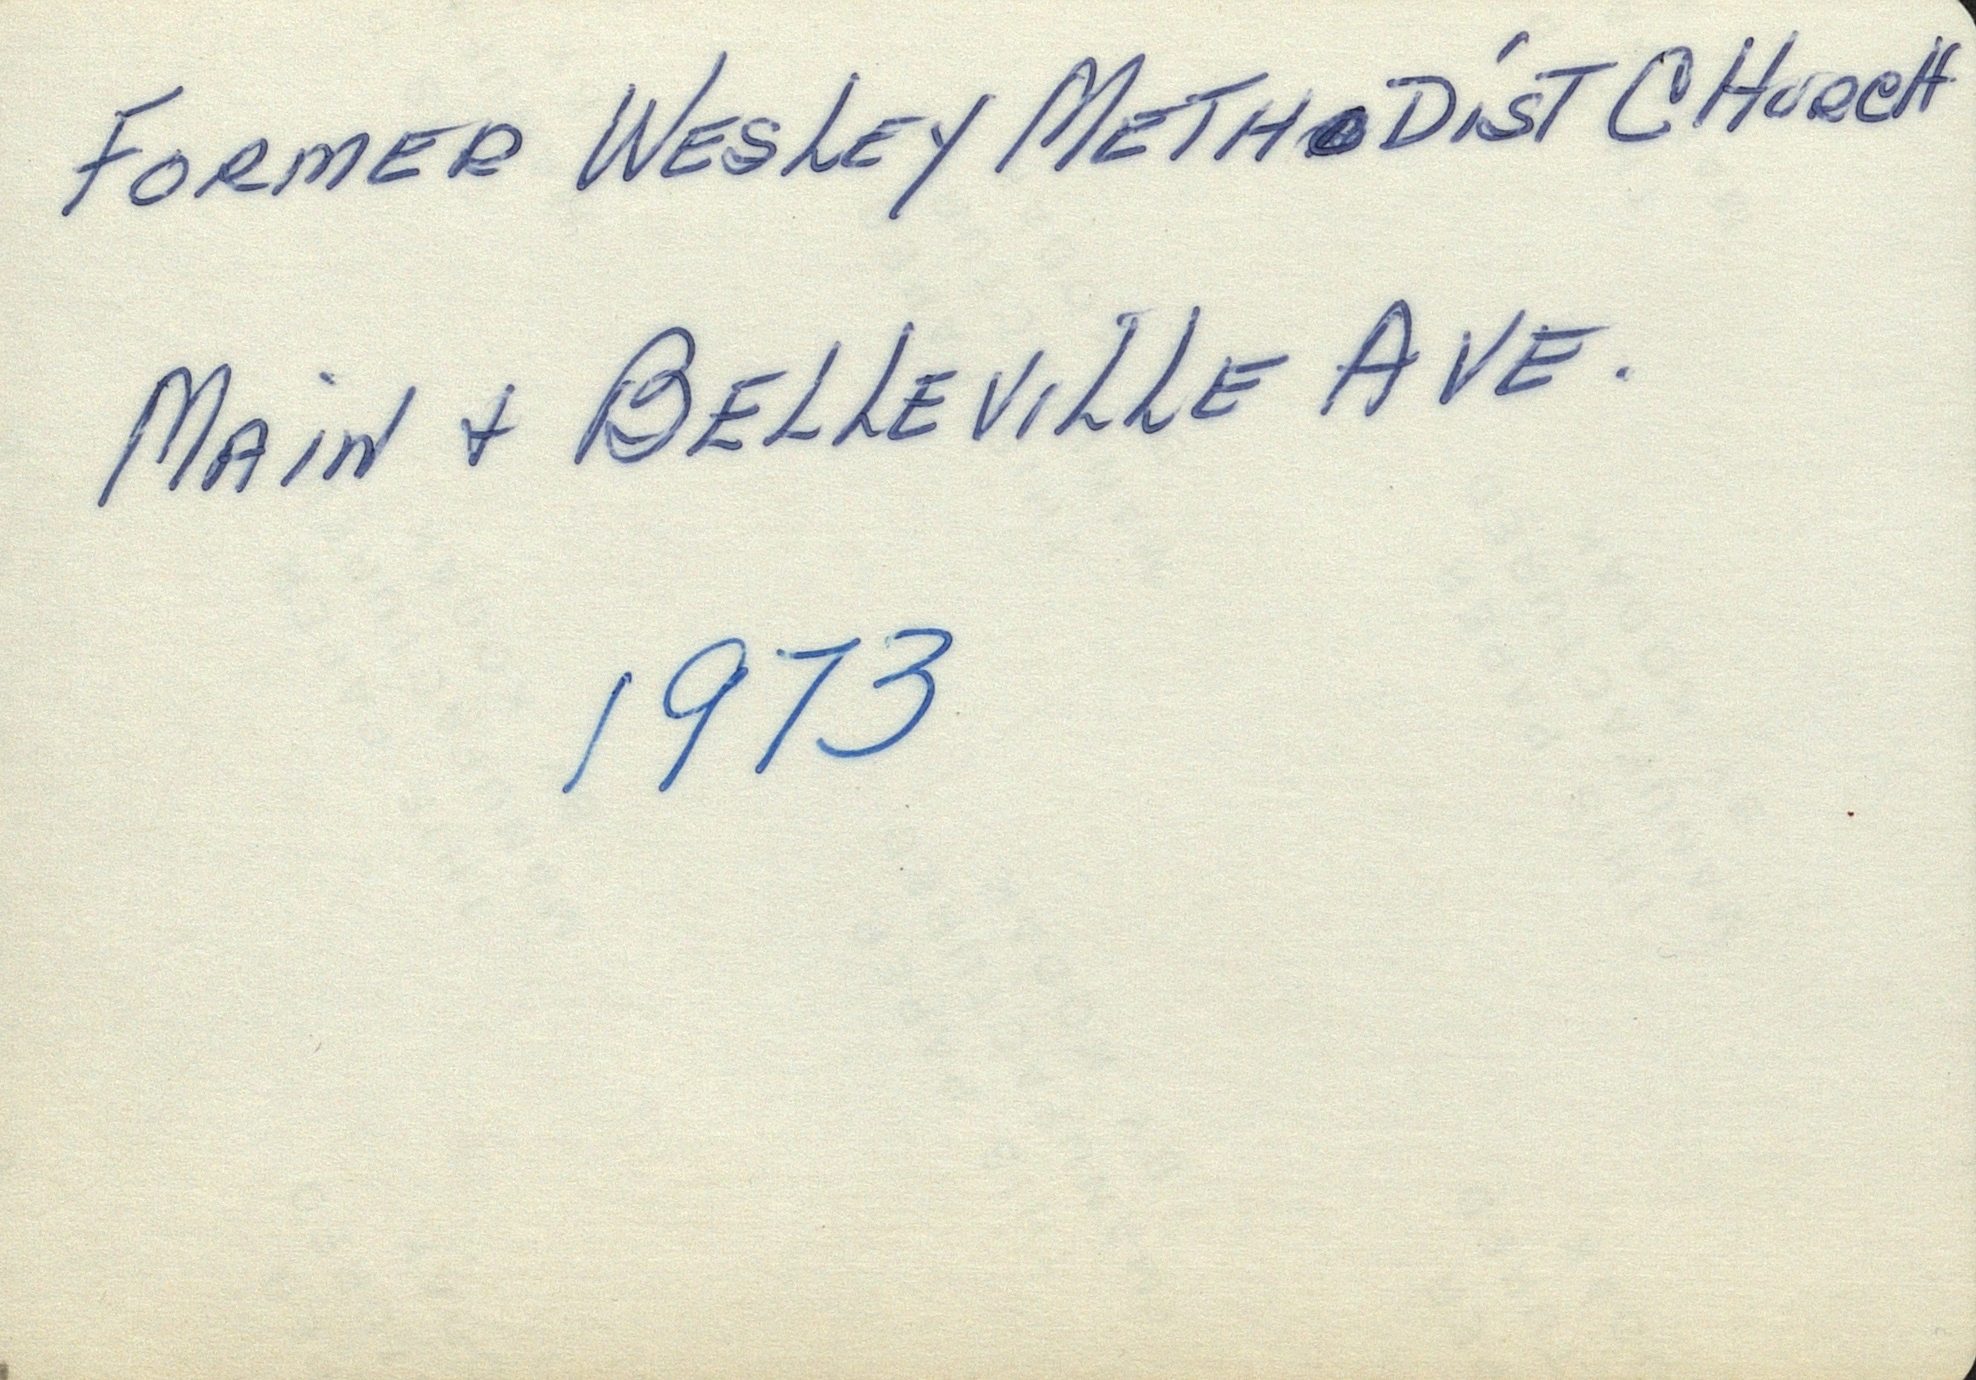 FORMER WESLEY METHODIST CHURCH
MAIN + BELLEVILLE AVE.
1973